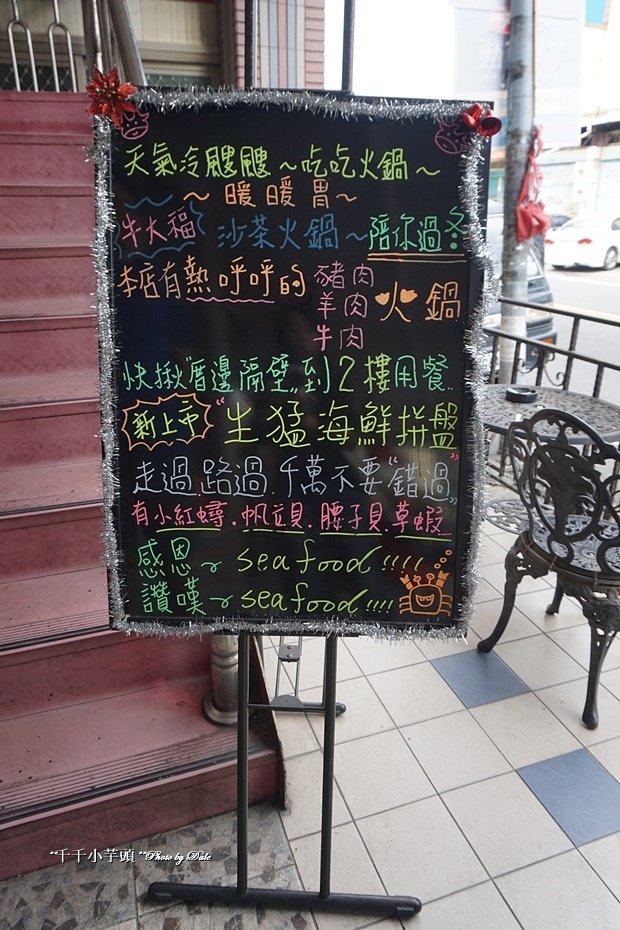 天氣冷颼颼~吃吃火鍋~
~暖暖胃~
牛大福 沙茶火鍋~陪你過冬
本店有熱呼呼的 豬肉 羊肉 牛肉 火鍋
快揪"厝邊隔壁"到2樓用餐..
新上市 "生猛海鮮拼盤"
走過.路過.千萬不要"錯過"
有小紅蟳.帆立貝.腰子貝.草蝦
感恩~seafood!!!!
讚嘆~seafood!!!!
"千千小芋頭" Photo by Dale